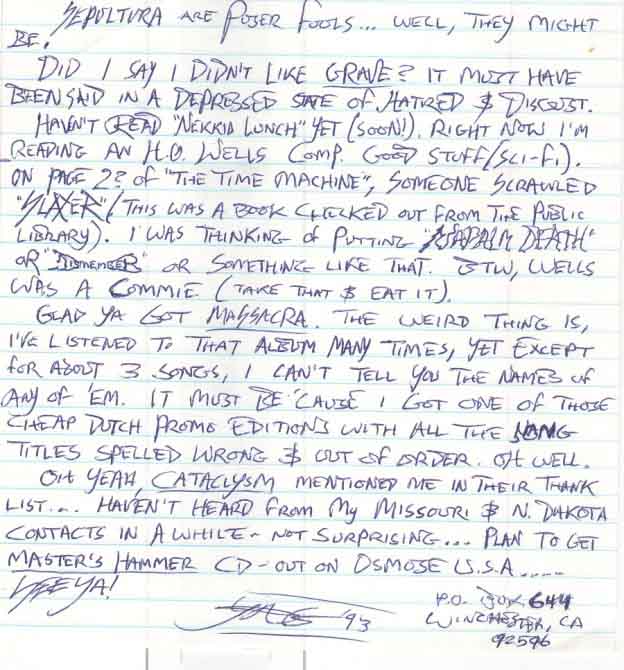 SEPULTURA ARE POSER FOOLS... WELL, THEY MIGHT
BE!
DID I SAY I DIDN'T LIKE GRAVE? IT MUST HAVE
BEEN SAID IN A DEPRESSED STATE OF HATRED & DISGUST.
HAVEN'T READ "NEKKID LUNCH" YET (SOON!). RIGHT NOW I'M
READING AN H.G. WELLS COMP. GOOD STUFF (SCI-FI).
ON PAGE 22 OF "THE TIME MACHINE", SOMEONE SCRAWLED
"SLAYER" (THIS WAS A BOOK CHECKED OUT FROM THE PUBLIC
LIBRARY). I WAS THINKING OF PUTTING "NAPALM DEATH"
OR "DISMEMBER" OR SOMETHING LIKE THAT. BTW, WELLS
WAS A COMMIE. (TAKE THAT & EAT IT).
GLAD YA GOT MASSACRA. THE WEIRD THING IS,
I'VE LISTENED TO THAT ALBUM MANY TIMES, YET EXCEPT
FOR ABOUT 3 SONGS, I CAN'T TELL YOU THE NAMES OF
ANY OF 'EM. IT MUST BE 'CAUSE I GOT ONE OF THOSE
CHEAP DUTCH PROMO EDITIONS WITH ALL THE SONG
TITLES SPELLED WRONG & OUT OF ORDER. OH WELL.
OH YEAH, CATACLYSM MENTIONED ME IN THEIR THANK
LIST... HAVEN'T HEARD FROM MY MISSOURI & N. DAKOTA
CONTACTS IN A WHILE - NOT SURPRISING... PLAN TO GET
MASTER'S HAMMER CD - OUT ON OSMOSE U.S.A.....
SEE YA!
'93
P.O. BOX 644
WINCHESTER, CA
92596